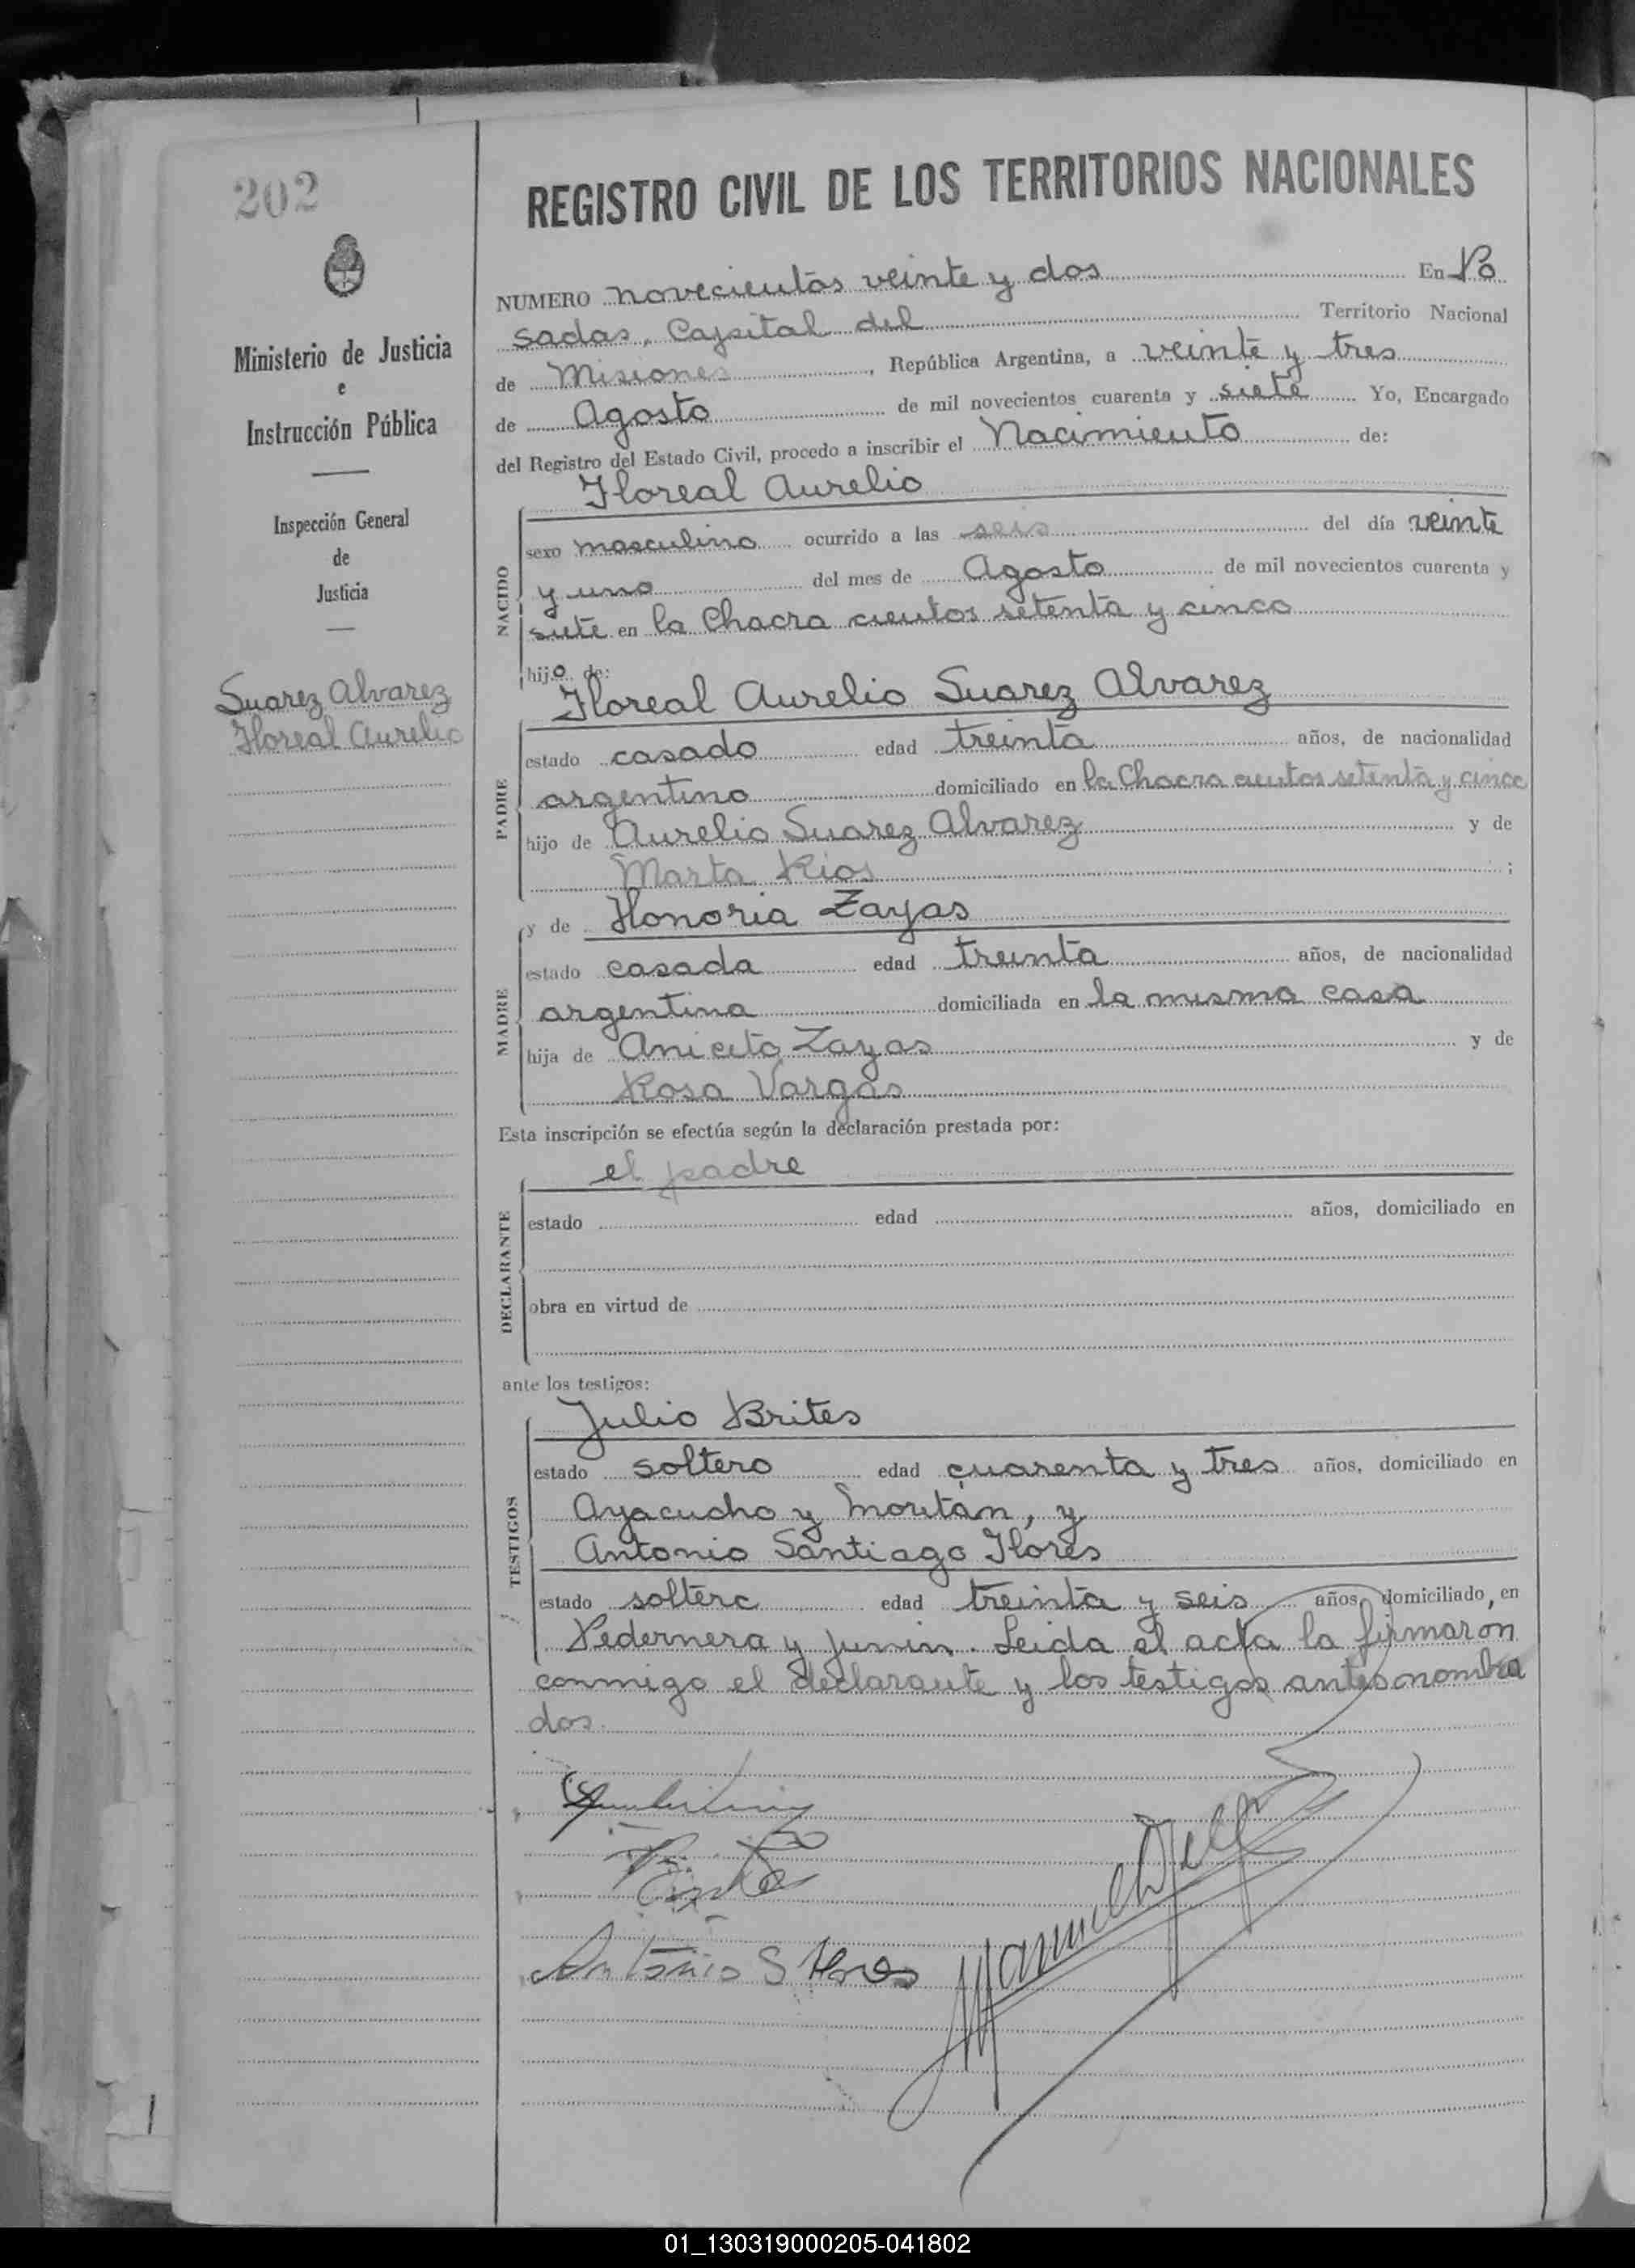 202
Ministerio de Justicia
e
Instrucción Pública
Inspección General
de
Justicia
Suarez Alvarez
Floreal Aurelio
REGISTRO CIVIL DE LOS TERRITORIOS NACIONALES
NUMERO novecientos veinte y dos En Po
sadas, Capital del Territorio Nacional
de Misiones, República Argentina, a veinte y tres
de Agosto de mil novecientos cuarenta y siete Yo, Encargado
del Registro del Estado Civil, procedo a inscribir el Nacimiento de:
Floreal Aurelio
NACIDO
sexo masculino ocurrido a las seis del día veinte
y uno del mes de Agosto de mil novecientos cuarenta y
siete en la Chacra cientos setenta y cinco
hijo de:
Floreal Aurelio Suarez Alvarez
PADRE
estado casado edad treinta años, de nacionalidad
argentino domiciliado en la Chacra cientos setenta y cinco
hijo de Aurelio Suarez Alvarez y de
Marta Rios ;
y de Honoria Zayas
MADRE
estado casada edad treinta años, de nacionalidad
argentina domiciliada en la misma casa
hija de Aniceto Zayas y de
Rosa Vargas
Esta inscripción se efectúa según la declaración prestada por:
el padre
DECLARANTE
estado edad años, domiciliado en
obra en virtud de
ante los testigos:
Julio Brites
TESTIGOS
estado soltero edad cuarenta y tres años, domiciliado en
Ayacucho y Moután, y
Antonio Santiago Flores
estado soltero edad treinta y seis años, domiciliado, en
Pedernera y Junin. Leida el acta la firmaron
conmigo el declarante y los testigos antes nombra
dos.
Antonio S Flores
01_130319000205-041802